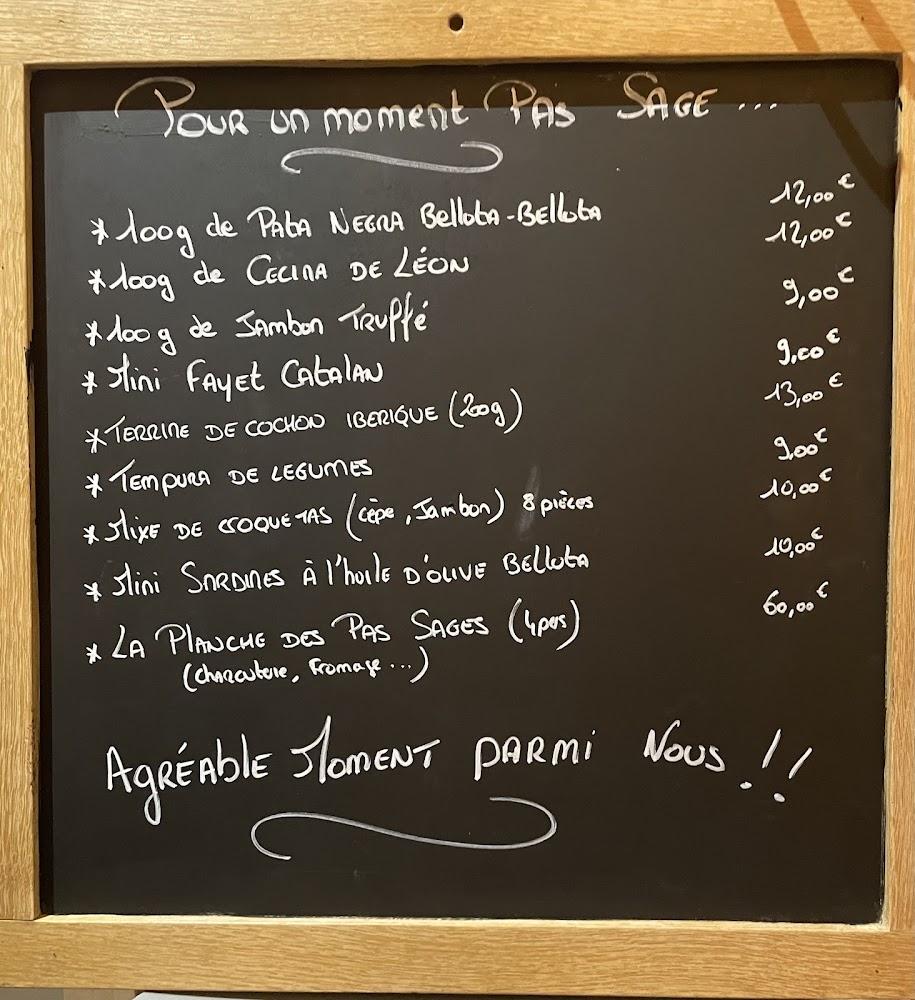 Pour un moment Pas Sage ...
* 100g de Pata Negra Bellota-Bellota 12,00€
* 100g de Cecina de Léon 12,00€
* 100g de Jambon Truffé 9,00€
* Mini Fayet Catalan 9,00€
* Terrine de cochon iberique (200g) 13,00€
* Tempura de legumes 9,00€
* Mixe de croquetas (cèpe, Jambon) 8 pièces 10,00€
* Mini Sardines à l'huile d'olive Bellota 10,00€
* La Planche des Pas Sages (4pers) 60,00€
(charcuterie, fromage ...)
Agréable Moment parmi Nous !!